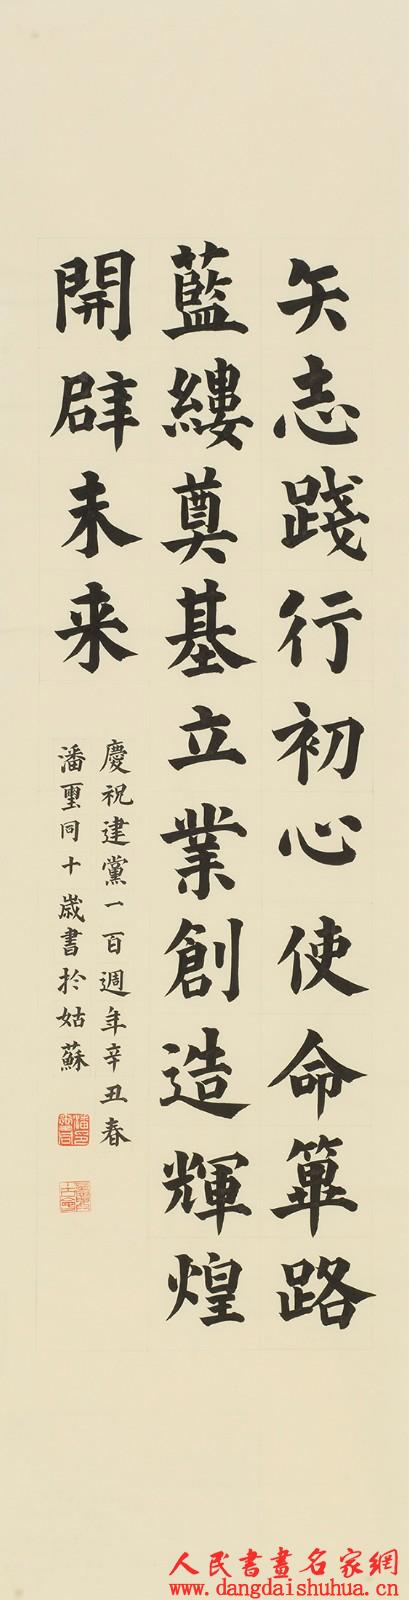 矢志踐行初心使命篳路
藍縷奠基立業創造輝煌
開辟未来
慶祝建黨一百週年辛丑春
潘璽同十歲書於姑蘇
人民書畫名家網
www.dangdaishuhua.cn